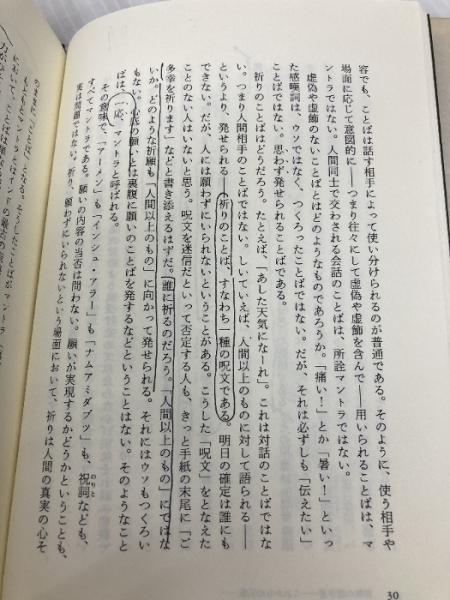 容でも、ことばは話す相手によって使い分けられるのが普通である。そのように、使う相手や
場面に応じて意図的に――つまり往々にして虚偽や虚飾を含んで――用いられることばは、マ
ントラではない。人間同士で交わされる会話のことばは、所詮マントラではない。
虚偽や虚飾のないことばとはどのようなものであろうか。「痛い！」とか「暑い！」といっ
た感嘆詞は、ウソではなく、つくろったことばではない。だが、それは必ずしも「伝えたい」
ことばではない。思わず発せられることばである。
祈りのことばはどうだろう。たとえば、「あした天気になーれ」。これは対話のことばではな
い。つまり人間相手のことばではない。しいていえば、人間以上のものに対して語られる――
というより、発せられる――祈りのことば、すなわち一種の呪文である。明日の確定は誰にも
できない。だが、人には願わずにいられないということがある。こうした「呪文」をとなえた
ことのない人はいないと思う。呪文を迷信だといって否定する人も、きっと手紙の末尾に「ご
多幸を祈ります」などと書き添えるはずだ。誰に祈るのだろう。「人間以上のもの」にではな
いか。どのような祈願も「人間以上のもの」に向かって発せられる。それにはウソもつくろい
もない。心底の願いとは裏腹に願いのことばを発するなどということはない。そのようなこと
ばは、一応、マントラと呼ばれる。
その意味で、「アーメン」も「インシュ・アラー」も「ナムアミダブツ」も、祝詞なども、
のりと
すべてマントラである。願いの内容の当否は問わない。願いが実現するかどうかということも、
実は問題ではない。祈り、願わずにいられないという場面において、祈りは人間の真実の心そ
30